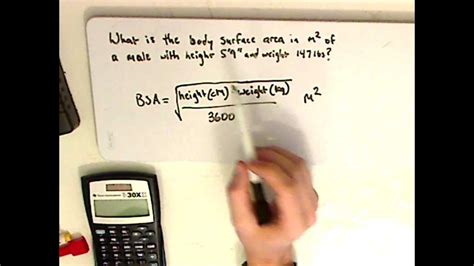 What is the body surface area in m² of
a male with height 5'9" and weight 147 lbs?
BSA = √
height(cm) weight(kg)
3600
M²
30X